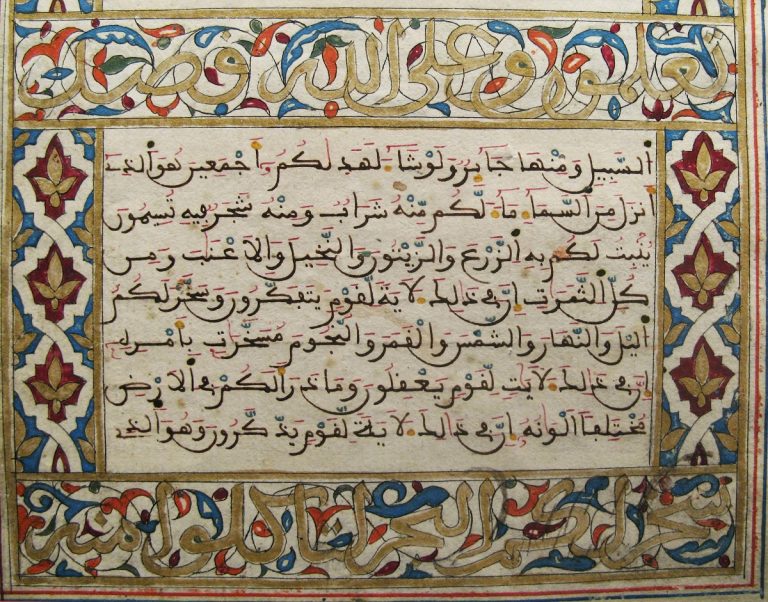 تعلمون وعلى الله قصد
السَّبِيلِ وَمِنْهَا جَآيِرٌ وَلَوْ شَآءَ لَهَدَيٰكُمُ أَجْمَعِينَ هُوَ الَّذِے
أَنزَلَ مِنَ السَّمَآءِ مَآءً لَّكُم مِّنْهُ شَرَابٌ وَمِنْهُ شَجَرٌ فِيهِ تُسِيمُونَ
يُنۢبِتُ لَكُم بِهِ الزَّرْعَ وَالزَّيْتُونَ وَالنَّخِيلَ وَالَاعْنَٰبَ وَمِن
كُلِّ الثَّمَرَٰتِ إِنَّ فِے ذَٰلِكَ لَأٓيَةً لِّقَوْمٍ يَتَفَكَّرُونَ وَسَخَّرَ لَكُمُ
الَّيْلَ وَالنَّهَارَ وَالشَّمْسَ وَالْقَمَرَ وَالنُّجُومَ مُسَخَّرَٰتٍ بِأَمْرِهِ
إِنَّ فِے ذَٰلِكَ لَأٓيَٰتٍ لِّقَوْمٍ يَعْقِلُونَ وَمَا ذَرَأَ لَكُمْ فِے الَارْضِ
مُخْتَلِفًا أَلْوَٰنُهُ إِنَّ فِے ذَٰلِكَ لَأٓيَةً لِّقَوْمٍ يَذَّكَّرُونَ وَهُوَ الَّذِے
سخر لكم البحر لتاكلوا منه